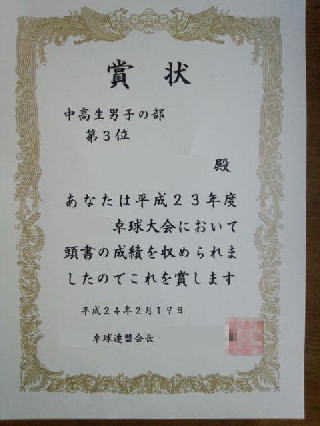 賞状
中高生男子の部
第3位
殿
あなたは平成23年度
卓球大会において
頭書の成績を収められま
したのでこれを賞します
平成24年2月19日
卓球連盟会長